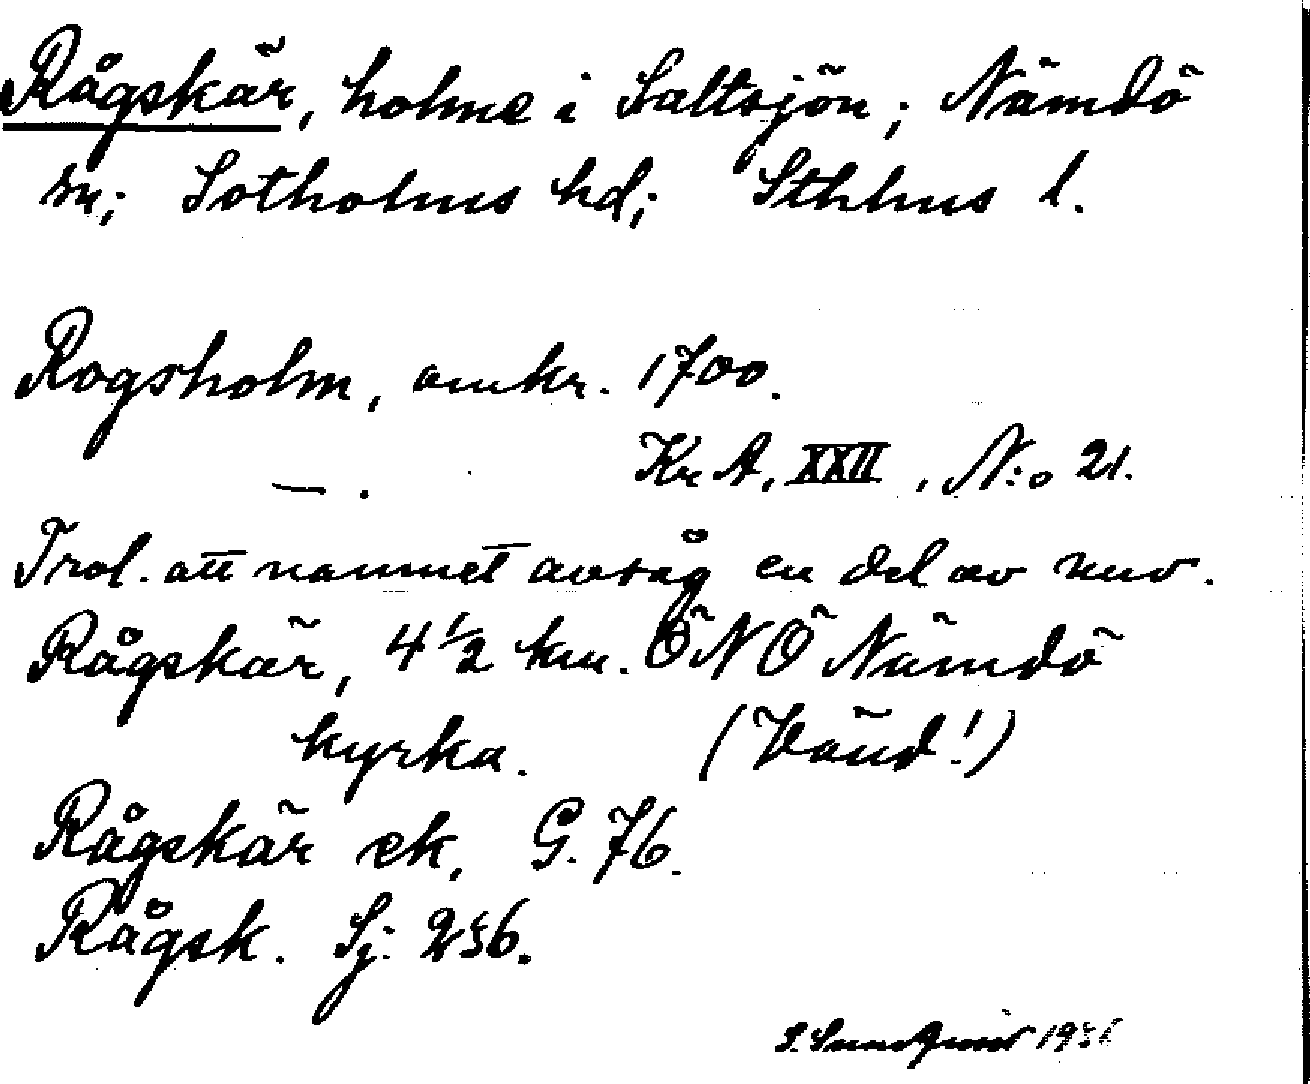 Rågskär, holme i Saltsjön; Nämdö
sn; Sotholms hd; Sthlms l.
Rogsholm, omkr. 1700.
— . Kr A, XXII, N:o 21.
Trol. att namnet avsåg en del av nuv.
Rågskär, 4 1/2 km. ÖNÖ Nämdö
kyrka. (Vänd!)
Rågskär ek. G. 76.
Rågsk. Sj: 236.